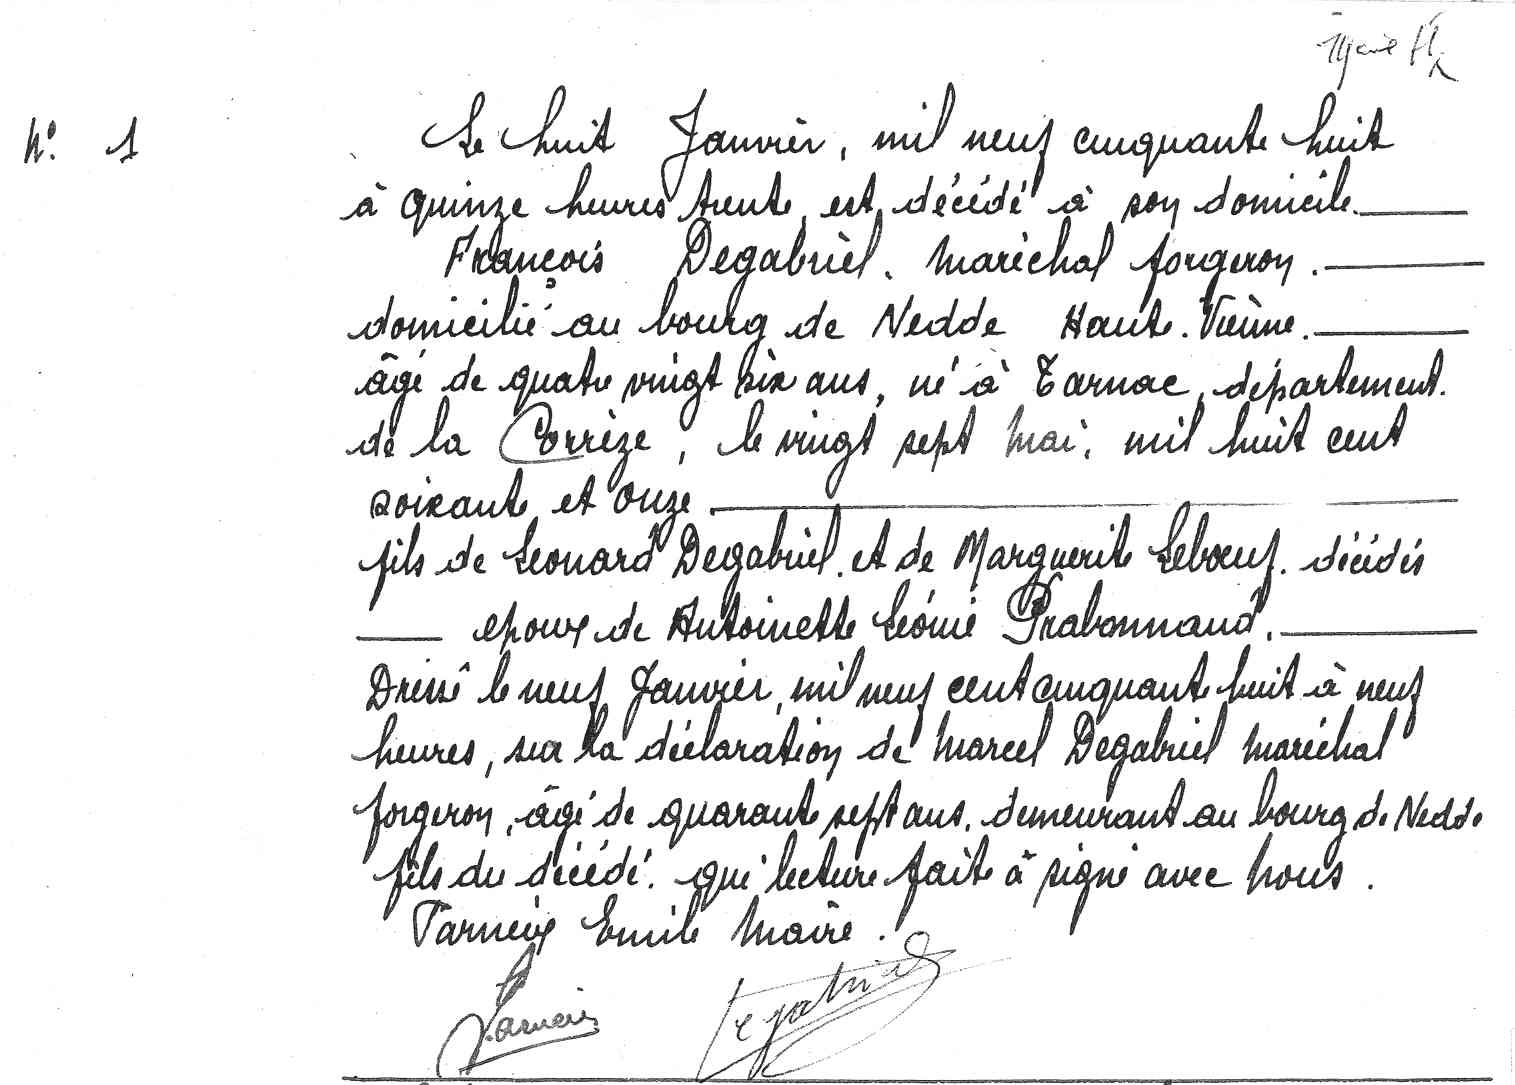 N° 1
Le huit Janvier, mil neuf cinquante huit
à quinze heures trente, est décédé à son domicile.
François Degabriel. Maréchal forgeron.
domicilié au bourg de Nedde Haute. Vienne.
âgé de quatre vingt six ans, né à Tarnac, département.
de la Corrèze, le vingt sept Mai, mil huit cent
soixante et onze
fils de Léonard Degabriel. et de Marguerite Lebœuf. décédés
époux de Antoinette Léonie Prabonnaud.
Dressé le neuf Janvier, mil neuf cent cinquante huit à neuf
heures, sur la déclaration de Marcel Degabriel Maréchal
forgeron, âgé de quarante sept ans, demeurant au bourg de Nedde
fils du décédé. qui lecture faite à signé avec Nous.
Tarneix Emile Maire.
Tarneix
Degabriel